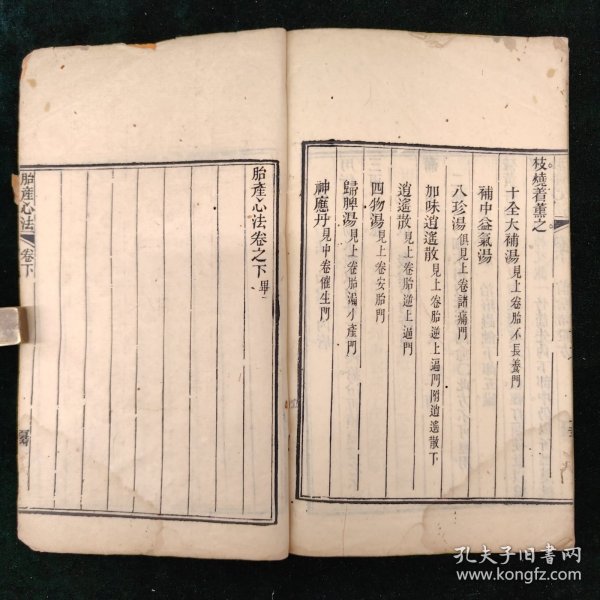 枝燒着薰之
十全大補湯見上卷胎不長養門
補中益氣湯
八珍湯俱見上卷諸痛門
加味逍遙散見上卷胎逆上逼門附逍遙散下
逍遙散見上卷胎逆上逼門
四物湯見上卷安胎門
歸脾湯見上卷胎漏小產門
神應丹見中卷催生門
胎產心法卷之下畢
胎產心法
卷下
孔夫子旧书网
www.kongfz.com